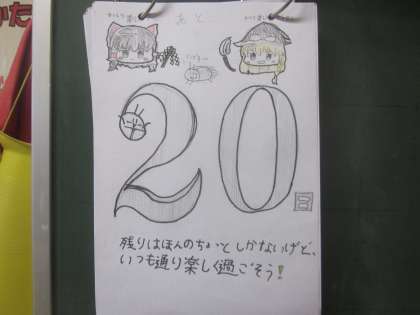 あと
20
日
残りはほんのちょっとしかないけど、
いつも通り楽しく過ごそう!